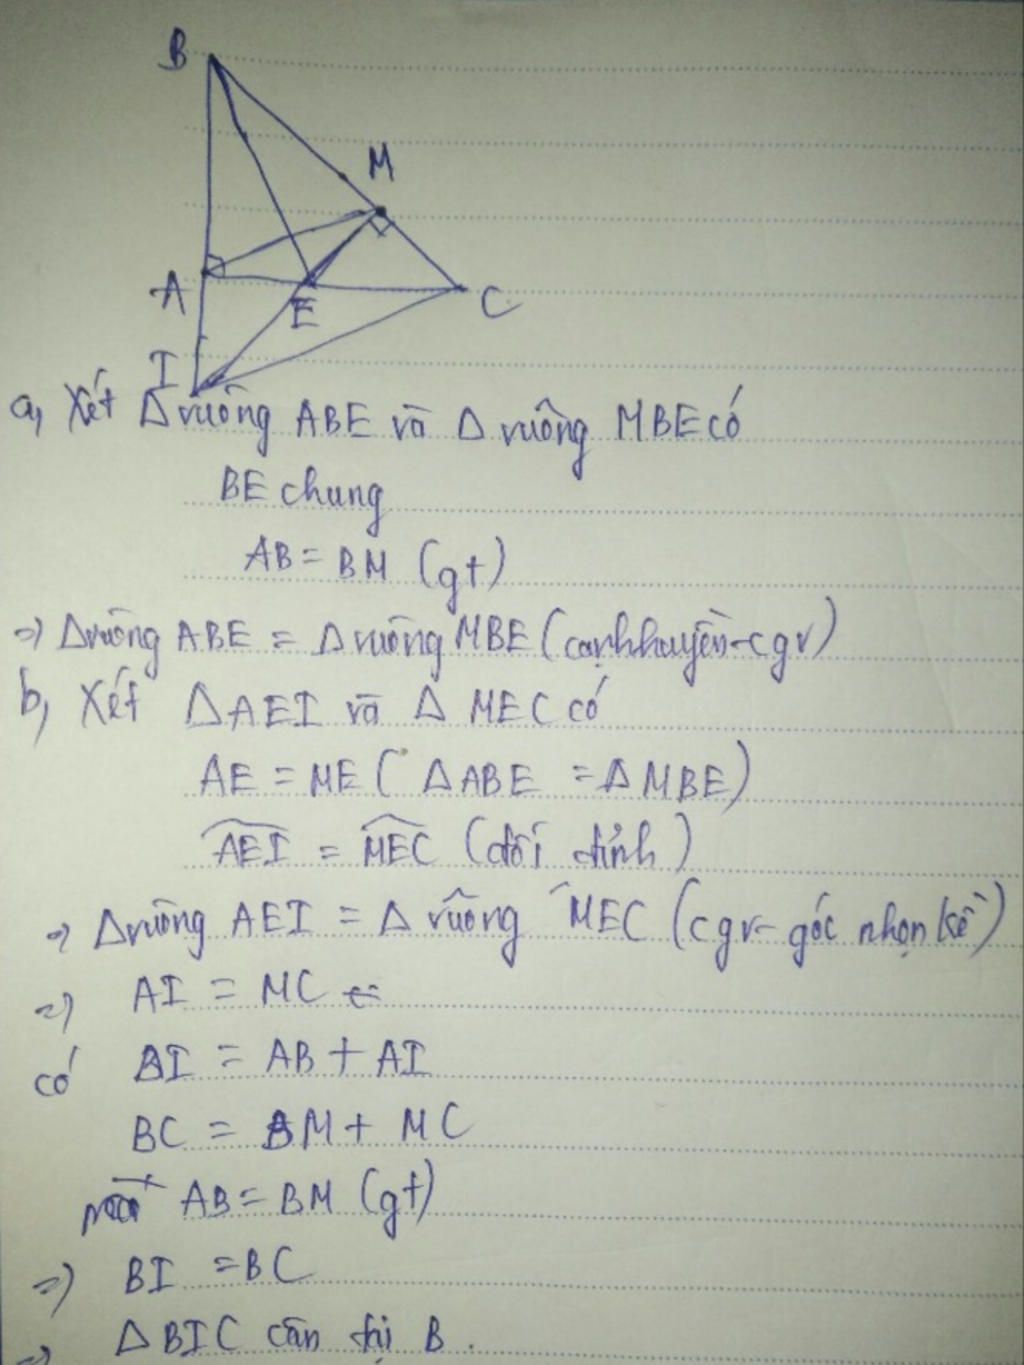 B
M
A
E
C
I
a, Xét Δ vuông ABE và Δ vuông MBE có
BE chung
AB = BM (gt)
=> Δ vuông ABE = Δ vuông MBE (cạnh huyền - cgv)
b, Xét ΔAEI và Δ MEC có
AE = ME ( ΔABE = ΔMBE)
AEI = MEC (đối đỉnh)
=> Δ vuông AEI = Δ vuông MEC (cgv - góc nhọn kề)
=> AI = MC
có BI = AB + AI
BC = BM + MC
mà AB = BM (gt)
=> BI = BC
=> Δ BIC cân tại B.